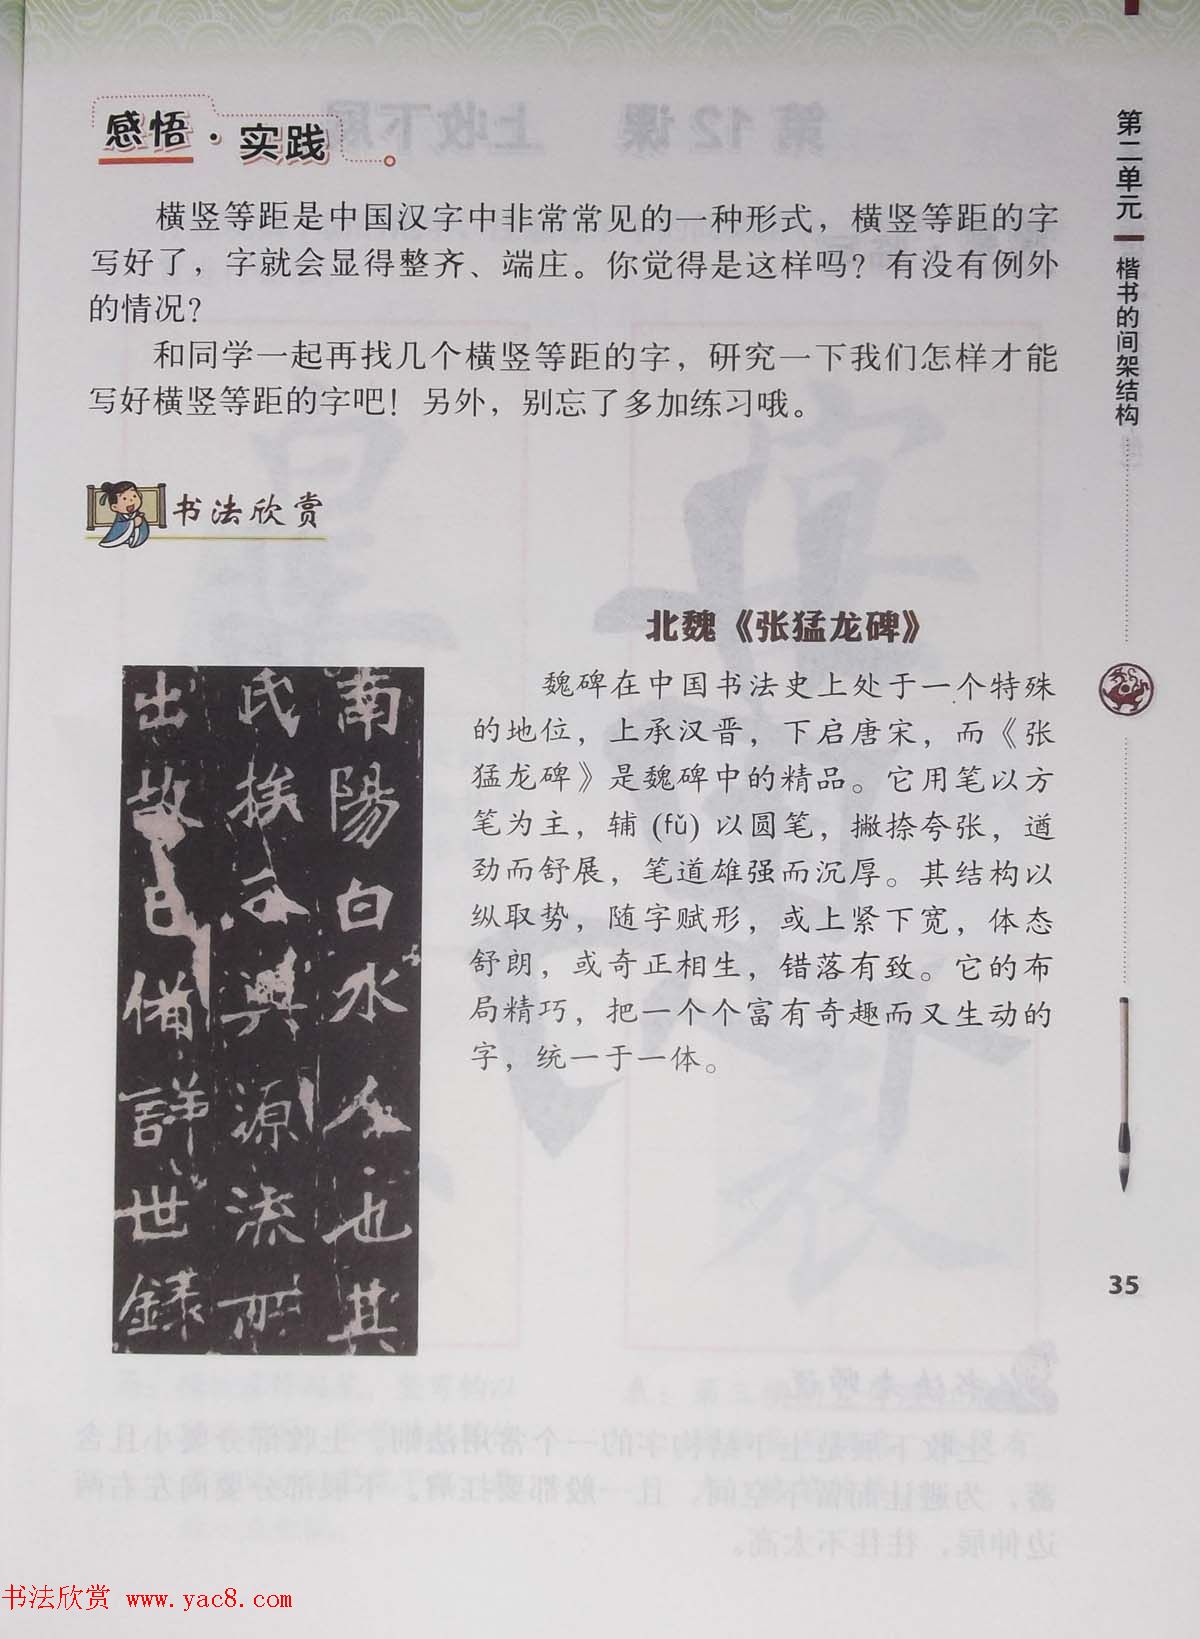 感悟·实践
横竖等距是中国汉字中非常常见的一种形式，横竖等距的字
写好了，字就会显得整齐、端庄。你觉得是这样吗？有没有例外
的情况？
和同学一起再找几个横竖等距的字，研究一下我们怎样才能
写好横竖等距的字吧！另外，别忘了多加练习哦。
书法欣赏
北魏《张猛龙碑》
魏碑在中国书法史上处于一个特殊
的地位，上承汉晋，下启唐宋，而《张
猛龙碑》是魏碑中的精品。它用笔以方
笔为主，辅 (fǔ) 以圆笔，撇捺夸张，遒
劲而舒展，笔道雄强而沉厚。其结构以
纵取势，随字赋形，或上紧下宽，体态
舒朗，或奇正相生，错落有致。它的布
局精巧，把一个个富有奇趣而又生动的
字，统一于一体。
南陽白水人也其
氏族云興源流所
出故已備詳世録
第二单元 楷书的间架结构
35
书法欣赏 www.yac8.com